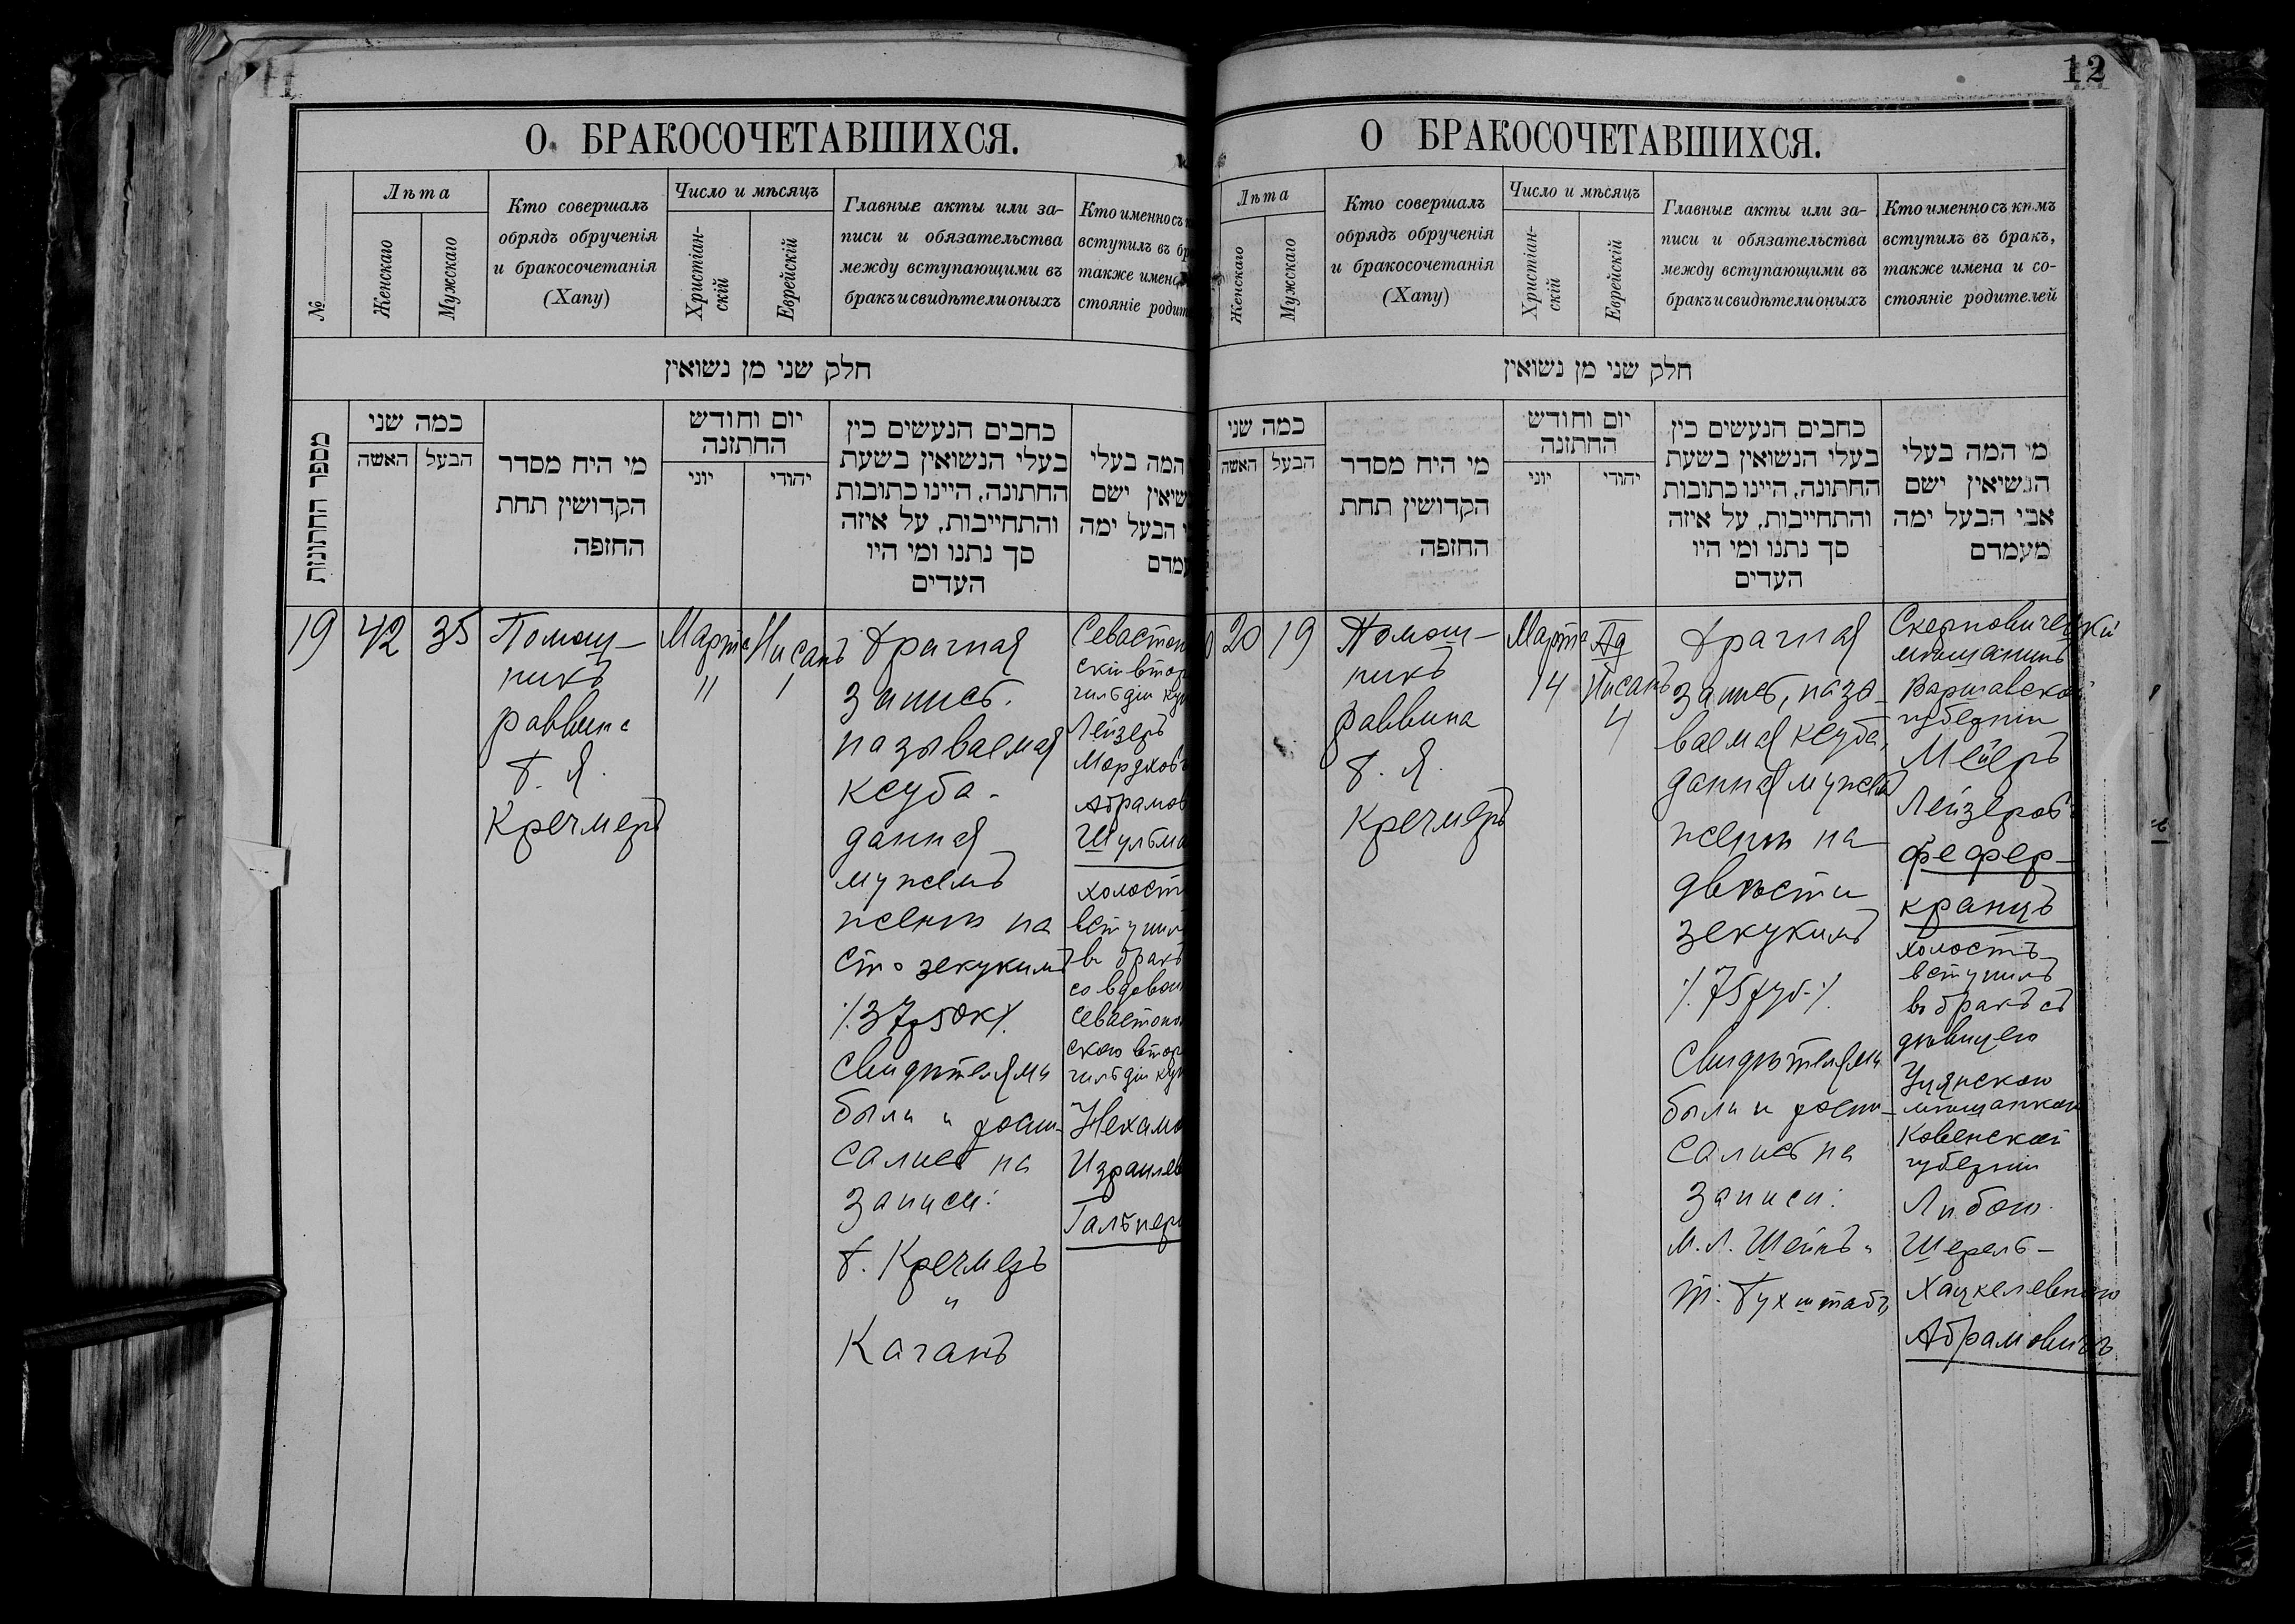 11
О. БРАКОСОЧЕТАВШИХСЯ.
№
Лѣта
Женскаго
Мужскаго
Кто совершалъ
обрядъ обрученія
и бракосочетанія
(Хапу)
Число и мѣсяцъ
Христіан-
скій
Еврейскій
Главные акты или за-
писи и обязательства
между вступающими въ
бракъ и свидѣтели оныхъ
Кто именно съ
вступилъ въ
также имена
стояніе
חלק שני מן נשואין
מספר החתונות
כמה שני
האשה
הבעל
מי היח מסדר
הקדושין תחת
החופה
יום וחודש
החתונה
יוני
יהודי
כתבים הנעשים בין
בעלי הנשואין בשעת
החתונה, היינו כתובות
והתחייבות, על איזה
סך נתנו ומי היו
העדים
המה בעלי
ישם
הבעל ימה
19
42
35
Помощ-
никъ
раввина
Б. Я.
Кречмеръ
Марта
11
Нисанъ
1
Брачная
запись.
называемая
ксуба.
данная
мужемъ
женѣ на
сто зекукимъ
/.37р50к/.
Свидѣтелями
были и роспи-
сались на
записи:
Б. Кречмеръ
и
Каганъ
Севастоп
скій втор
гильдіи куп
Лейзеръ
Мордхов
Абрамов
Шульма
холост
вступил
въ бракъ
со вдовою
Севастопо
скою втор
гильдіи куп
Нехамо
Израилев
Гальпер
12
О БРАКОСОЧЕТАВШИХСЯ.
Лѣта
Женскаго
Мужскаго
Кто совершалъ
обрядъ обрученія
и бракосочетанія
(Хапу)
Число и мѣсяцъ
Христіан-
скій
Еврейскій
Главные акты или за-
писи и обязательства
между вступающими въ
бракъ и свидѣтели оныхъ
Кто именно съ кѣмъ
вступилъ въ бракъ,
также имена и со-
стояніе родителей
חלק שני מן נשואין
כמה שני
האשה
הבעל
מי היח מסדר
הקדושין תחת
החופה
יום וחודש
החתונה
יוני
יהודי
כתבים הנעשים בין
בעלי הנשואין בשעת
החתונה, היינו כתובות
והתחייבות, על איזה
סך נתנו ומי היו
העדים
מי המה בעלי
הנשיאין ישם
אבי הבעל ימה
מעמדם
20
19
Помощ-
никъ
раввина
Б. Я.
Кречмеръ
Марта
14
Нисанъ
4
Брачная
запись, назы-
ваемая ксуба,
данная мужемъ
женѣ на
двѣсти
зекукимъ
/.75 руб./.
Свидѣтелями
были и роспи-
сались на
записи:
М. Л. Шейнъ и
Т. Бухштабъ
Скерновичецкій
мѣщанинъ
Варшавской
губерніи
Мейеръ
Лейзеровъ
Фефер-
кранцъ
холостъ
вступилъ
въ бракъ съ
дѣвицею
Уцянскою
мѣщанкою
Ковенской
губерніи
Либою
Шерель-
Хацкелевною
Абрамовичъ